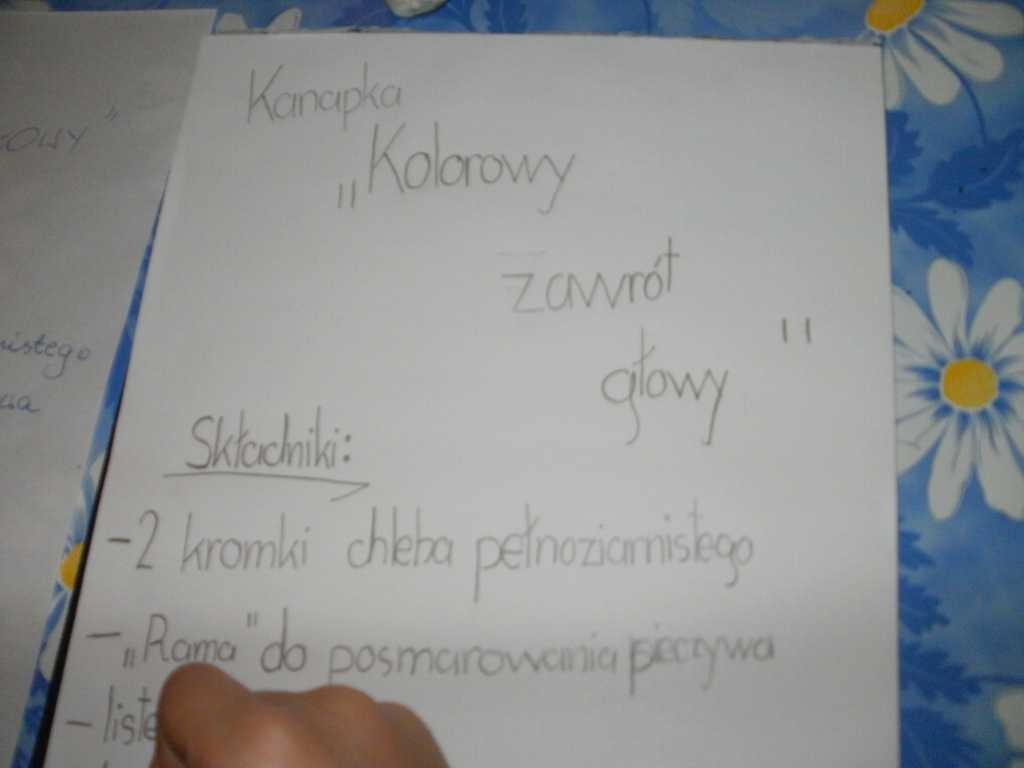 Kanapka
„Kolorowy
zawrót
głowy"
Składniki:
- 2 kromki chleba pełnoziarnistego
- „Rama" do posmarowania pieczywa
- liste
OWY"
nistego